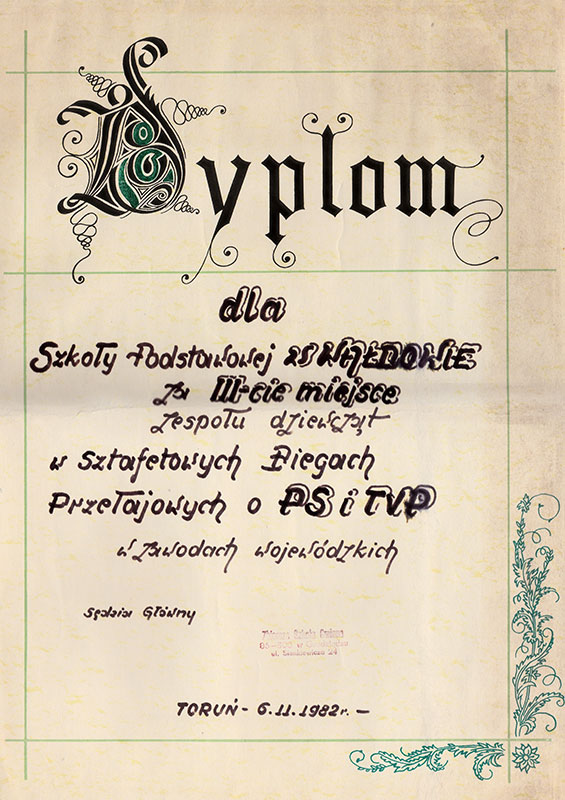 Dyplom
dla
Szkoły Podstawowej w WAŁDOWIE
za III-cie miejsce
zespołu dziewcząt
w sztafetowych Biegach
Przełajowych o PS i TVP
w zawodach wojewódzkich
Sędzia Główny
Zbiorcza Szkoła Gminna
w
ul. Sienkiewicza 24
TORUŃ - 6.11.1982 r. -